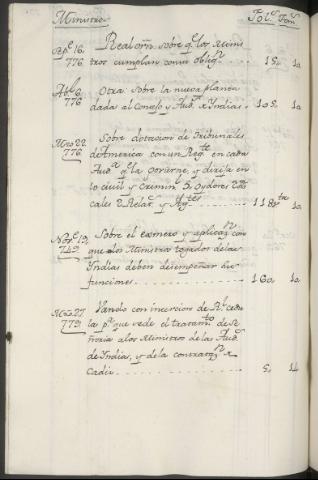 Ministros. Fol.s Tom.s
Real orñ. sobre q.e los Minis
tros cumplan con su obligⁿ. 15. 10.
776
Otra sobre la nueva planta
776 dada al Consejo y Aud.s de Indias. 105. 10.
Mzo 22. Sobre dotacion de Tribunales
776. de America con un Reg.te en cada
Aud.a q.e la govierne, y dirija en
lo civil, y crimin.l 5. oydores
cales 2 Relat.s y Ag.tes 118
Nov.e 19. Sobre el esmero y aplicaz.n
con que los Ministros togados de las
Yndias deben desempeñar sus
funciones. 160. 10.
Mzo 27. Vando con incercion de R.l cedu
779. la p.r que se de el tratam.to de Se
ñoria a los Ministros de las Aud.s
de Indias, y de la contrataz.n de
Cadiz. 5. 14